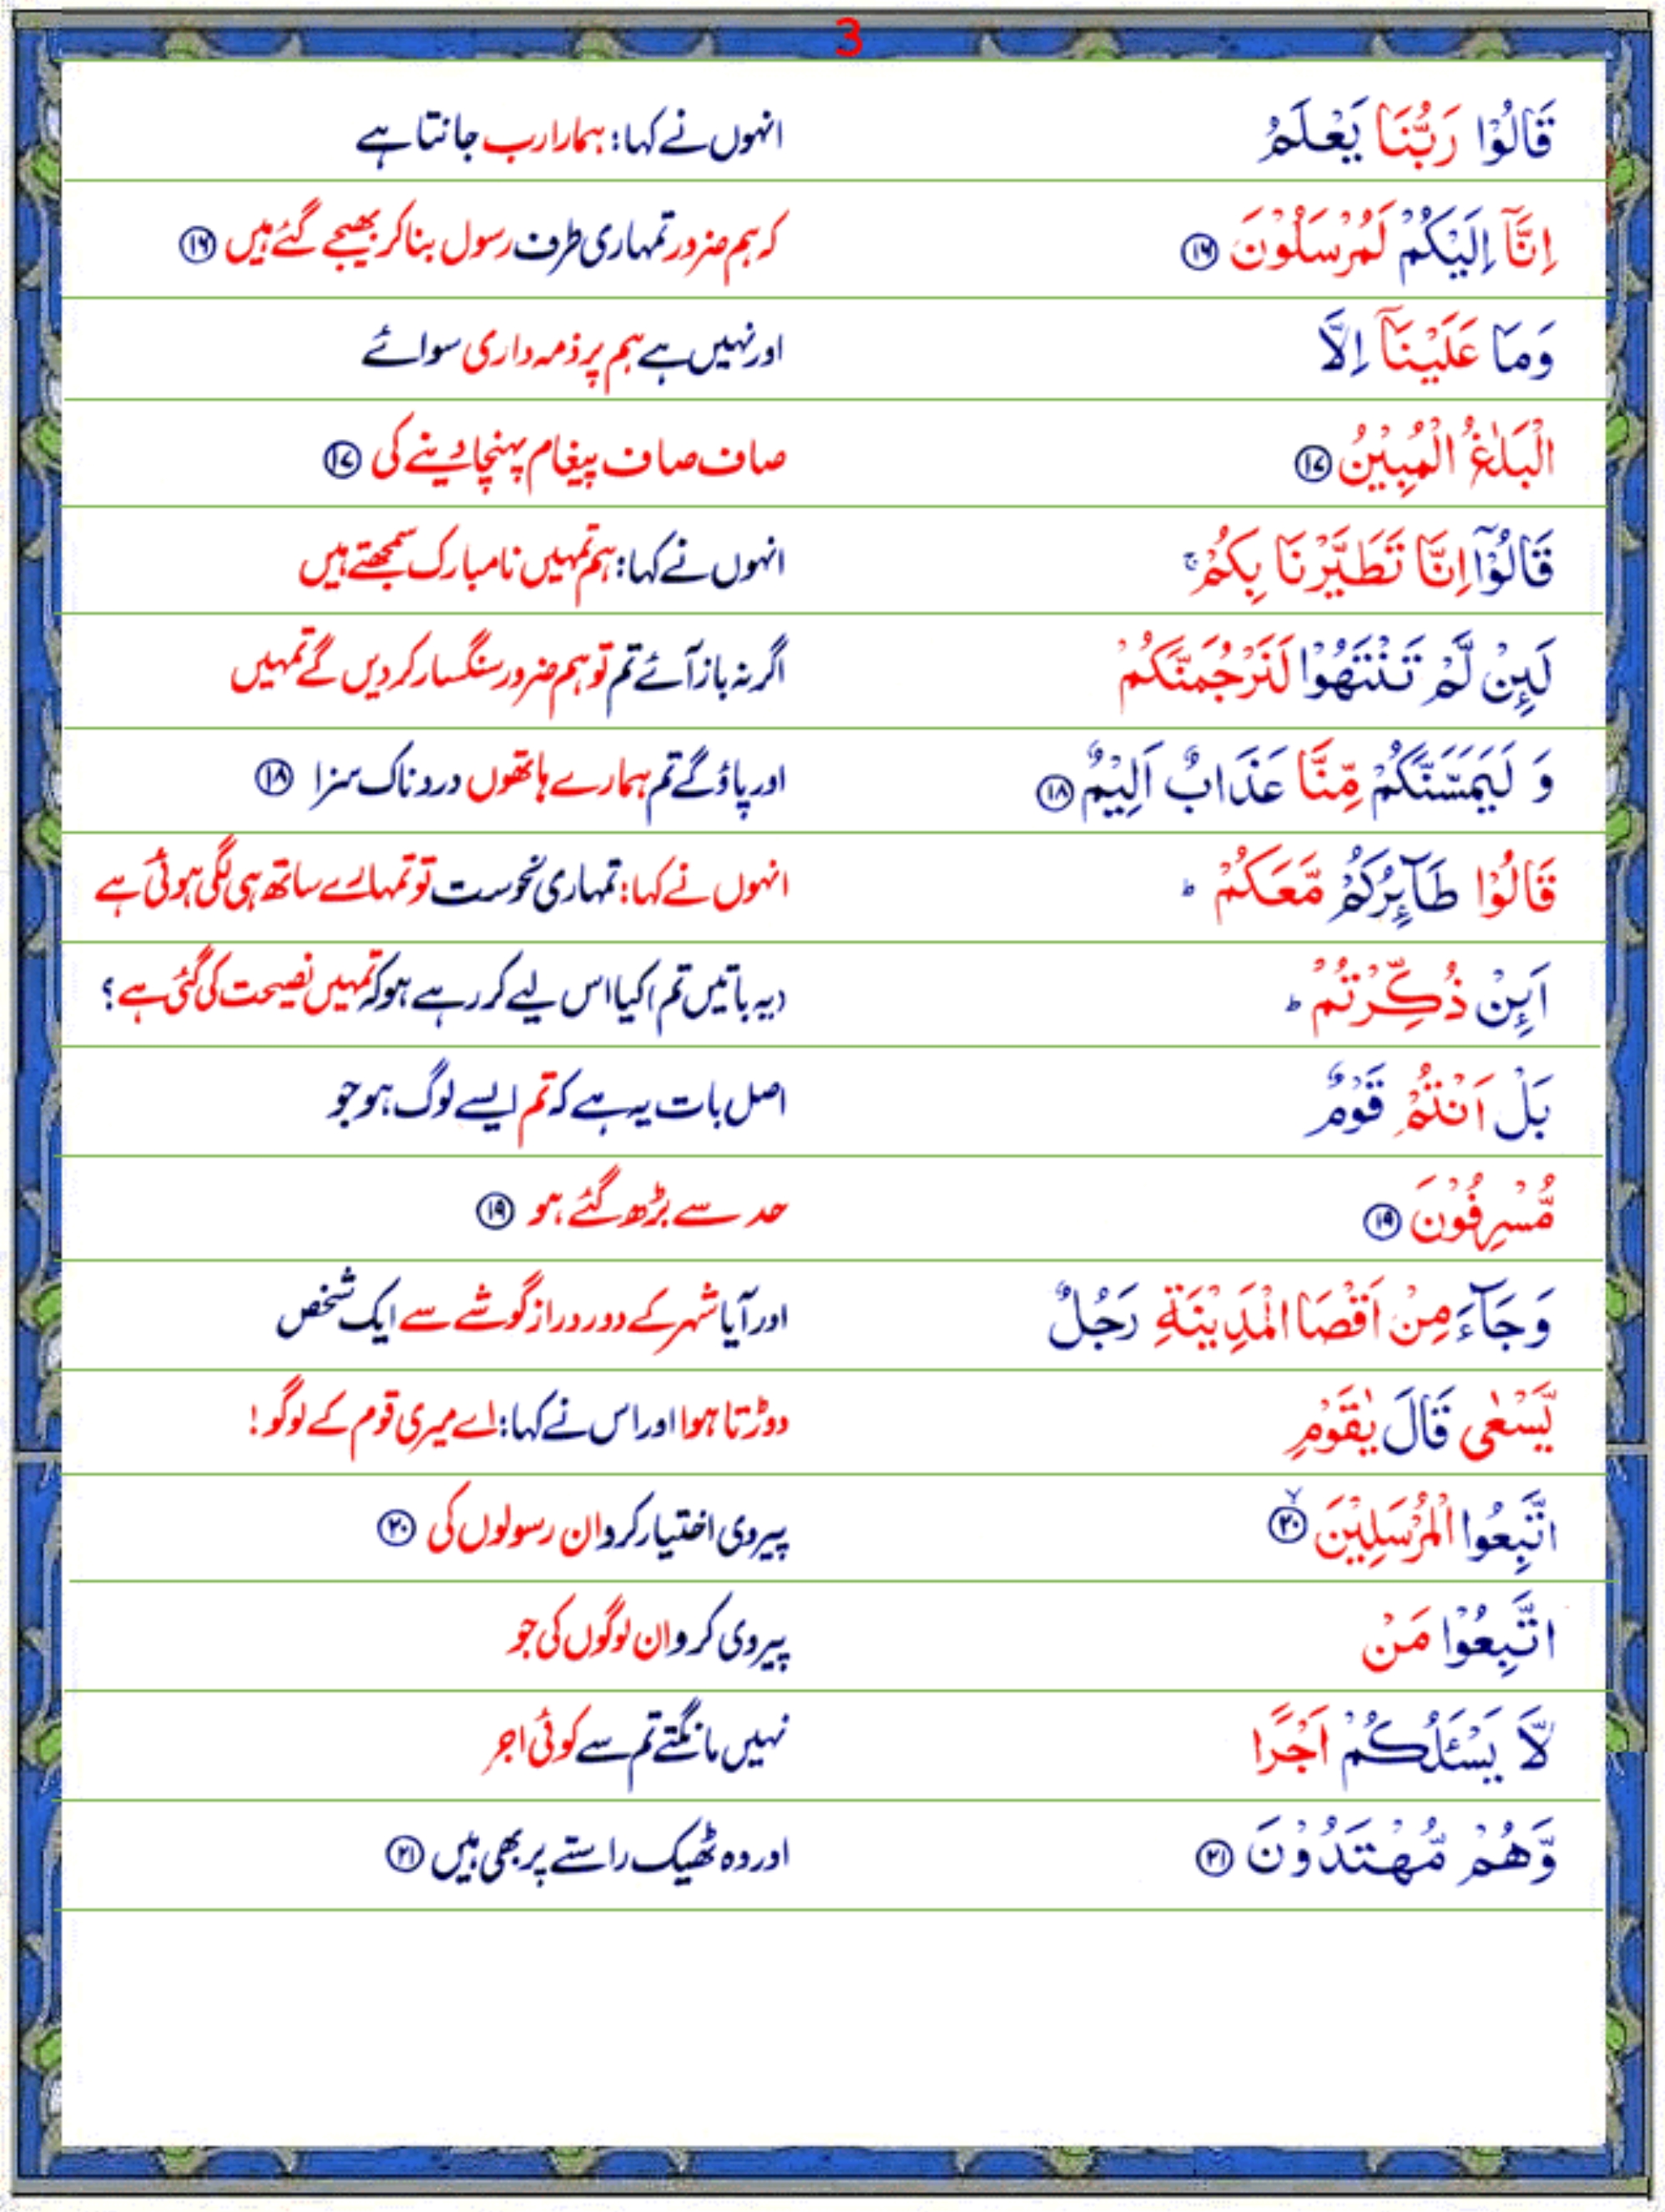 3
قَالُوْا رَبُّنَا يَعْلَمُ انہوں نے کہا: ہمارا رب جانتا ہے
اِنَّاۤ اِلَيْكُمْ لَمُرْسَلُوْنَ ۱۶ کہ ہم ضرور تمہاری طرف رسول بنا کر بھیجے گئے ہیں ۱۶
وَمَا عَلَيْنَاۤ اِلَّا اور نہیں ہے ہم پر ذمہ داری سوائے
الْبَلٰغُ الْمُبِيْنُ ۱۷ صاف صاف پیغام پہنچا دینے کی ۱۷
قَالُوْۤا اِنَّا تَطَيَّرْنَا بِكُمْ ۚ انہوں نے کہا: ہم تمہیں نامبارک سمجھتے ہیں
لَئِنْ لَّمْ تَنْتَهُوْا لَنَرْجُمَنَّكُمْ اگر نہ باز آئے تم تو ہم ضرور سنگسار کردیں گے تمہیں
وَ لَيَمَسَّنَّكُمْ مِّنَّا عَذَابٌ اَلِيْمٌ ۱۸ اور پاؤ گے تم ہمارے ہاتھوں دردناک سزا ۱۸
قَالُوْا طَآئِرُكُمْ مَّعَكُمْ ؕ انہوں نے کہا: تمہاری نحوست تو تمہارے ساتھ ہی لگی ہوئی ہے
اَئِنْ ذُكِّرْتُمْ ؕ (یہ باتیں تم) کیا اس لیے کر رہے ہو کہ تمہیں نصیحت کی گئی ہے؟
بَلْ اَنْتُمْ قَوْمٌ اصل بات یہ ہے کہ تم ایسے لوگ ہو جو
مُّسْرِفُوْنَ ۱۹ حد سے بڑھ گئے ہو ۱۹
وَجَآءَ مِنْ اَقْصَا الْمَدِيْنَةِ رَجُلٌ اور آیا شہر کے دور دراز گوشے سے ایک شخص
يَّسْعٰى قَالَ يٰقَوْمِ دوڑتا ہوا اور اس نے کہا: اے میری قوم کے لوگو!
اتَّبِعُوا الْمُرْسَلِيْنَ ۲۰ پیروی اختیار کرو ان رسولوں کی ۲۰
اتَّبِعُوْا مَنْ پیروی کرو ان لوگوں کی جو
لَّا يَسْئَلُكُمْ اَجْرًا نہیں مانگتے تم سے کوئی اجر
وَّهُمْ مُّهْتَدُوْنَ ۲۱ اور وہ ٹھیک راستے پر بھی ہیں ۲۱